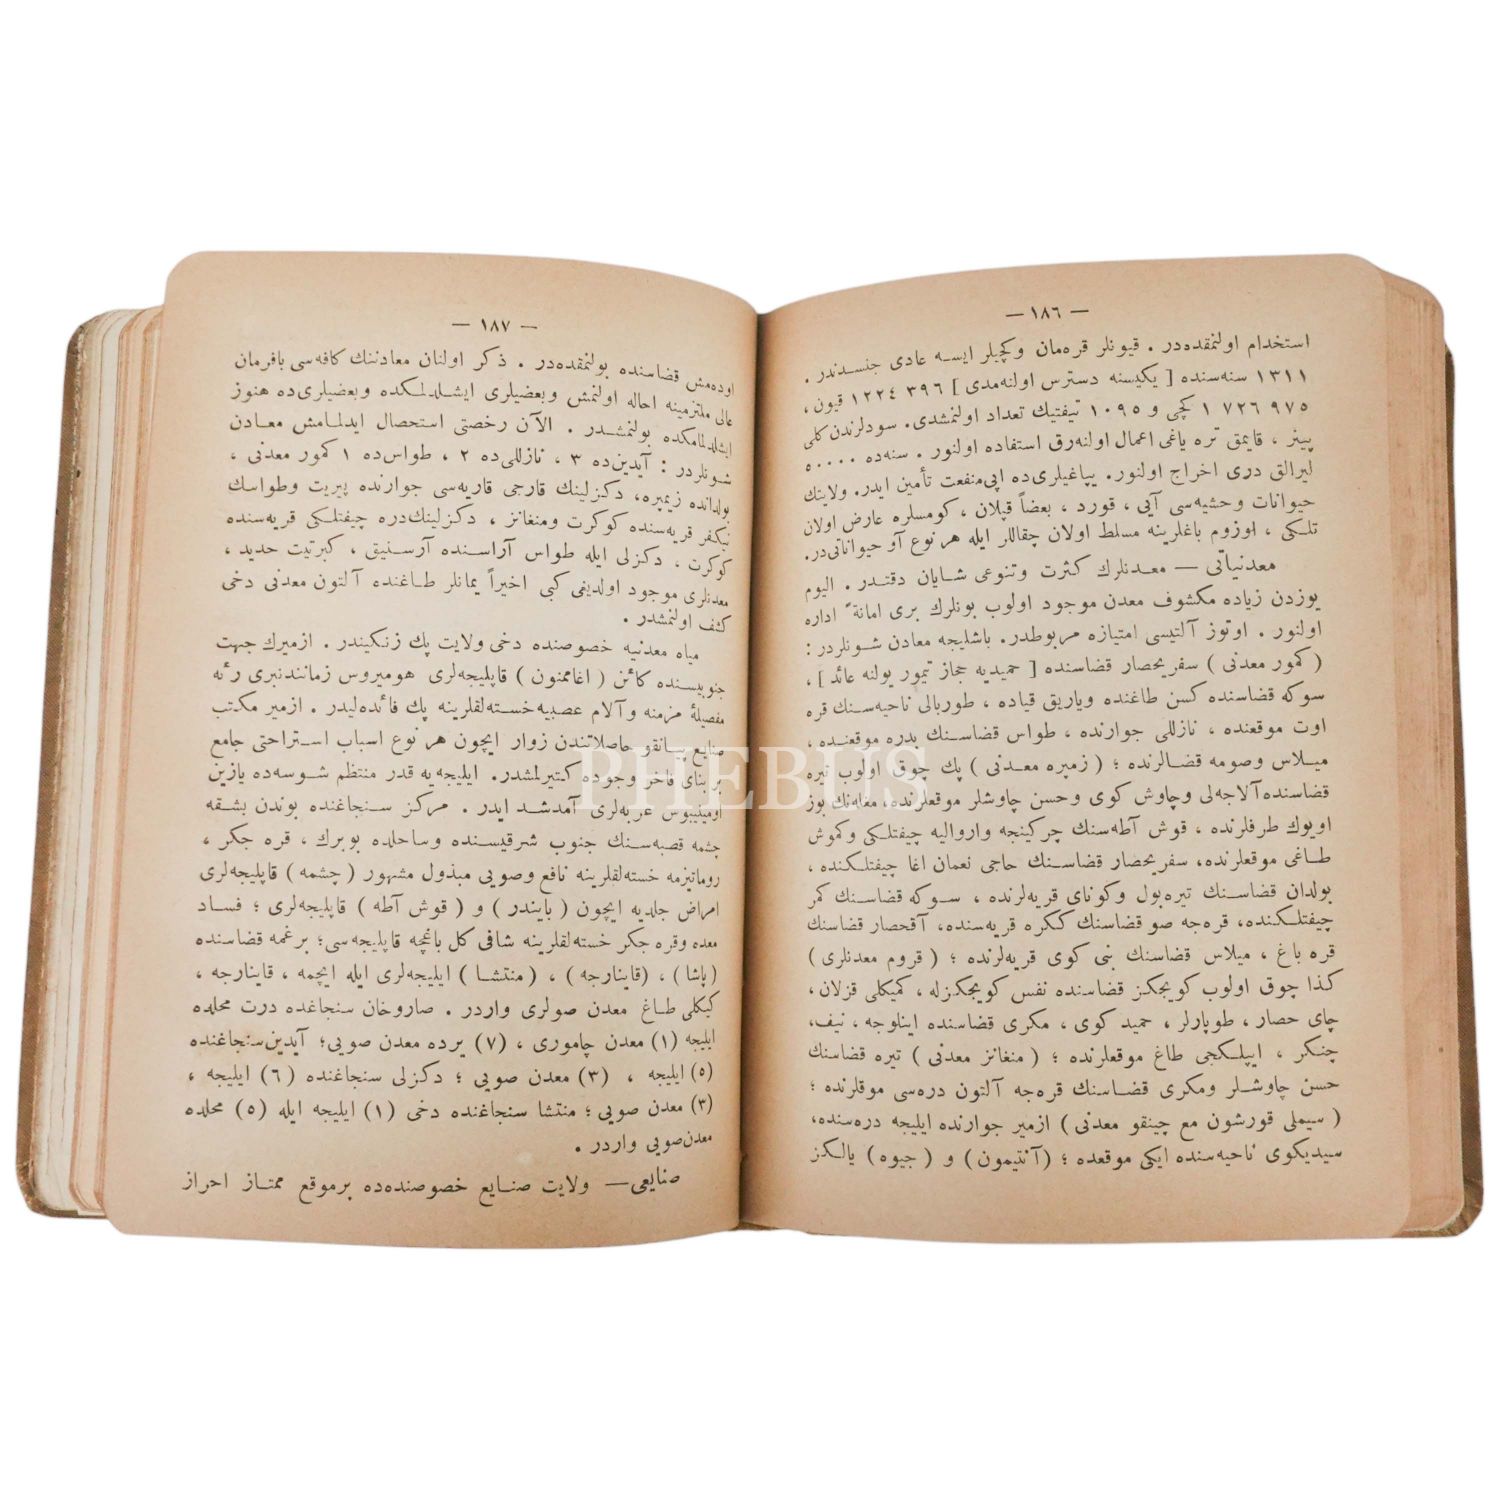 — ١٨٦ —
استخدام اولنمقده‌در . قیونلر قره‌مان وکچیلر ایسه عادی جنسدندر .
١٣١١ سنه‌سنده [ یکیسنه دسترس اولنه‌مدی ] ٣٩٦ ١٢٢٤ قیون ،
٩٧٥ ٧٢٦ ١ کچی و ١٠٩٥ تیفتیك تعداد اولنمشدی. سودلرندن کلی
پینز ، قایمق تره یاغی اعمال اولنه‌رق استفاده اولنور . سنه‌ده ٥٠٠٠٠
لیرالق دری اخراج اولنور. یپاغیلری‌ده اپی‌منفعت تأمین ایدر. ولایتك
حیوانات وحشیه‌سی آیی ، قورد ، بعضاً قپلان ، کومسلره عارض اولان
تلکی ، اوزوم باغلرینه مسلط اولان چقاللر ایله هر نوع آو حیواناتی‌در.
معدنیاتی — معدنلرك کثرت وتنوعی شایان دقتدر . الیوم
یوزدن زیاده مکشوف معدن موجود اولوب بونلرك بری امانةً اداره
اولنور . اوتوز آلتیسی امتیازه مربوطدر. باشلیجه معادن شونلردر :
( کمور معدنی ) سفریحصار قضاسنده [ حمیدیه حجاز تیمور یولنه عائد ] ،
سوکه قضاسنده کسن طاغنده ویاریق قیاده ، طوربالی ناحیه‌سنك قره
اوت موقعنده ، نازللی جوارنده ، طواس قضاسنك بدره موقعنده ،
میلاس وصومه قضالرنده ؛ ( زمپره معدنی ) پك چوق اولوب تیره
قضاسنده آلاجه‌لی وچاوش کوی وحسن چاوشلر موقعلرنده، مغله‌نك بوز
اویوك طرفلرنده ، قوش آطه‌سنك چرکینجه وارووالیه چیفتلکی وکموش
طاغی موقعلرنده، سفریحصار قضاسنك حاجی نعمان اغا چیفتلکنده ،
بولدان قضاسنك تیره‌بول وکونای قریه‌لرنده ، سوکه قضاسنك کمر
چیفتلکنده، قره‌جه صو قضاسنك کنکره قریه‌سنده، آقحصار قضاسنك
قره باغ ، میلاس قضاسنك بنی کوی قریه‌لرنده ؛ ( قروم معدنلری )
کذا چوق اولوب کویجکز قضاسنده نفس کویجکزله ، کمیکلی قزلان،
چای حصار ، طوپارلر ، حمید کوی ، مکری قضاسنده اینلوجه ، نیف،
چنکر ، ایپلکجی طاغ موقعلرنده ؛ ( منغانز معدنی ) تیره قضاسنك
حسن چاوشلر ومکری قضاسنك قره‌جه آلتون دره‌سی موقلرنده ؛
( سیملی قورشون مع چینقو معدنی ) ازمیر جوارنده ایلیجه دره‌سنده،
سیدیکوی ناحیه‌سنده ایکی موقعده ؛ (آنتیمون ) و ( جیوه ) یالکز
— ١٨٧ —
اوده‌مش قضاسنده بولنمقده‌در . ذکر اولنان معادننك کافه‌سی بافرمان
عالی ملتزمینه احاله اولنمش وبعضیلری ایشلدلمکده وبعضیلری‌ده هنوز
ایشلدلمامکده بولنمشدر . الآن رخصتی استحصال ایدلمامش معادن
شونلردر : آیدین‌ده ٣ ، نازللی‌ده ٢ ، طواس‌ده ١ کمور معدنی ،
بولدانده زیمپره، دکزلینك قارجی قاریه‌سی جوارنده پیریت وطواسك
نیکفر قریه‌سنده کوکرت ومنغانز ، دکزلینك‌دره چیفتلکی قریه‌سنده
کوکرت ، دکزلی ایله طواس آراسنده آرسنیق ، کبرتیت حدید ،
معدنلری موجود اولدیغی کبی اخیراً یمانلر طاغنده آلتون معدنی دخی
کشف اولنمشدر .
میاه معدنیه خصوصنده دخی ولایت پك زنکیندر . ازمیرك جهت
جنوبیسنده کائن ( اغاممنون ) قاپلیجه‌لری هومیروس زمانندنبری رئه
مفصلیهٔ مزمنه وآلام عصبیه خسته‌لقلرینه پك فائده‌لیدر . ازمیر مکتب
صنایع پانقو حاصلاتندن زوار ایچون هر نوع اسباب استراحتی جامع
بر بنای فاخر وجوده کتیرلمشدر. ایلیجه‌یه قدر منتظم شوسه‌ده یازین
اومنیبوس عربه‌لری آمدشد ایدر . مرکز سنجاغنده بوندن بشقه
چشمه قصبه‌سنك جنوب شرقیسنده وساحلده بوبرك ، قره جکر ،
روماتیزمه خسته‌لقلرینه نافع وصویی مبذول مشهور ( چشمه ) قاپلیجه‌لری
امراض جلدیه ایچون ( بایندر ) و ( قوش آطه ) قاپلیجه‌لری ؛ فساد
معده وقره جکر خسته‌لقلرینه شافی کل باغچه قاپلیجه‌سی؛ برغمه قضاسنده
( پاشا ) ، (قاینارجه ) ، ( منتشا ) ایلیجه‌لری ایله ایچمه ، قاینارجه ،
کیکلی طاغ معدن صولری واردر . صاروخان سنجاغنده درت محلده
ایلیجه (١) معدن چاموری ، (٧) یرده معدن صویی؛ آیدین‌سنجاغنده
(٥) ایلیجه ، (٣) معدن صویی ؛ دکزلی سنجاغنده (٦) ایلیجه ،
(٣) معدن صویی ؛ منتشا سنجاغنده دخی (١) ایلیجه ایله (٥) محلده
معدن‌صویی واردر .
صنایعی— ولایت صنایع خصوصنده‌ده برموقع ممتاز احراز
PHEBUS